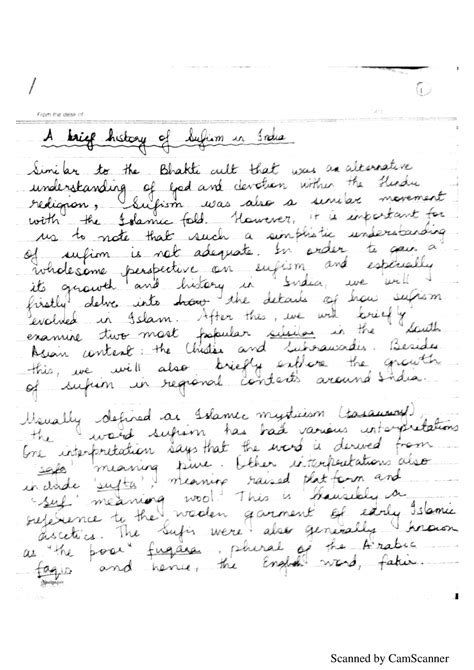 1
From the desk of
A brief history of Sufism in India
Similar to the Bhakti cult that was an alternative
understanding of God and devotion within the Hindu
religion, Sufism was also a similar movement
with the Islamic fold. However, it is important for
us to note that such a simplistic understanding
of sufism is not adequate. In order to gain a
wholesome perspective on sufism and especially
its growth and history in India, we will
firstly delve into the details of how sufism
evolved in Islam. After this, we will briefly
examine two most popular silsilas in the South
Asian context: the Chistis and Suhrawadis. Besides
this, we will also briefly explore the growth
of sufism in regional contexts around India.
Usually defined as Islamic mysticism (tasawwuf),
the word sufism has had various interpretations
One interpretation says that the word is derived from
safa meaning pure. Other interpretations also
include 'suffa' meaning raised platform and
'suf' meaning wool. This is a
reference to the woolen garment of early Islamic
ascetics. The Sufis were also generally known
as "the poor" fuqara, pheral of the Arabic
faqir and hence, the English word, fakir.
Scanned by CamScanner